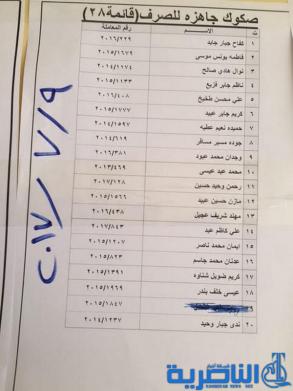 صكوك جاهزه للصرف (قائمة ٢٨)
ت الاســـــم رقم المعاملة
١ كفاح جبار جابد ٢٠١٦/٢٢٩
٢ فاطمه يونس موسى ٢٠١٥/١٦٧٩
٣ نوال هادي صالح ٢٠١٤/١١٧٤
٤ ناظم جابر فزيع ٢٠١٥/١١٣٣
٥ علي محسن طخيخ ٢٠١٦/٤٠٨
٦ كريم جابر عبيد ٢٠١٥/١٧٧٧
٧ حميده نعيم عطيه ٢٠١٤/١٥٩٧
٨ جوده مسير مسافر ٢٠١٤/٦١٩
٩ وجدان محمد عبود ٢٠١٦/٣٨١
١٠ محمد عبد عيسى ٢٠١٣/٤٦٩
١١ رحمن وحيد حسين ٢٠١٧/١٢٨
١٢ مازن حسين عبيد ٢٠١٥/١٥٦٦
١٣ مهند شريف عجيل ٢٠١٦/٤٣٨
١٤ علي كاظم عبد ٢٠١٧/٨٤٣
١٥ ايمان محمد ناصر ٢٠١٥/١٢٠٧
١٦ عدنان محمد جاسم ٢٠١٥/٨٢٣
١٧ كريم ضويل شناوه ٢٠١٥/١٣٩١
١٨ عيسى خلف بندر ٢٠١٥/١٩٦٩
٢٠١٥/١٨٤٧
٢٠ ندى جبار وحيد ٢٠١٤/١٢٣٧
٢٠١٧/٧/٩
شبكة أخبار
الناصرية